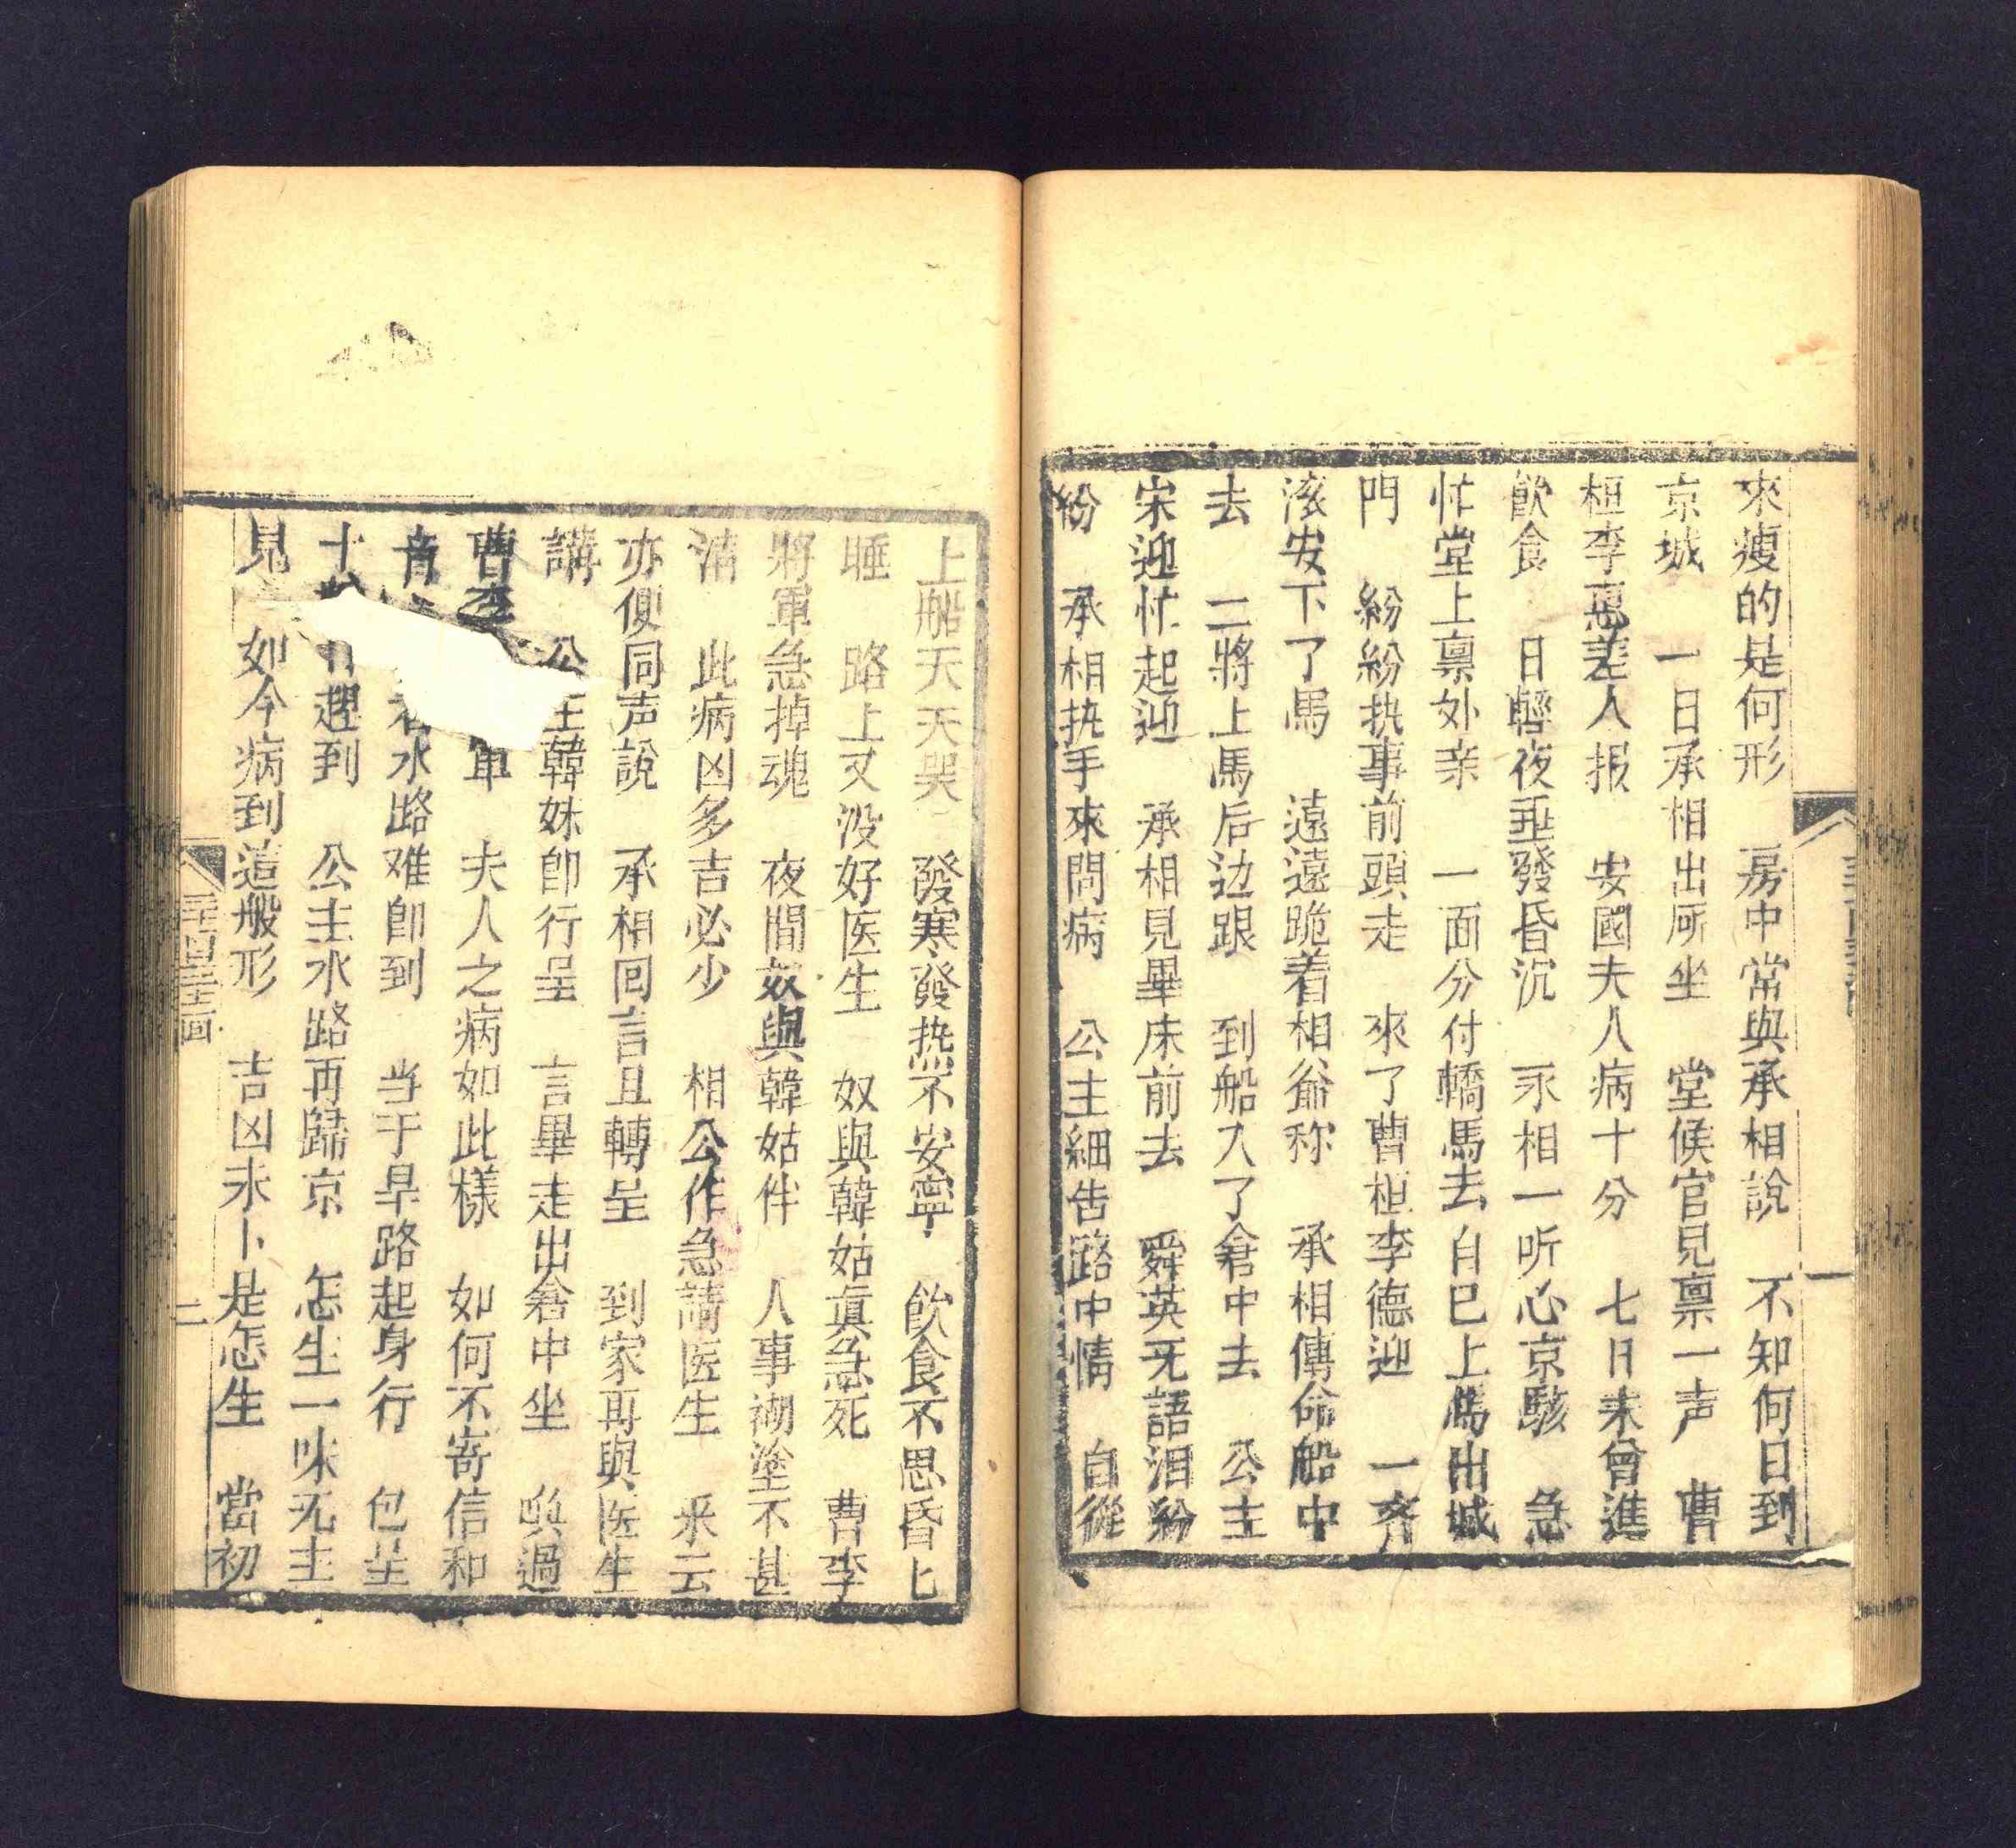 來瘦的是何形　房中常與承相說　不知何日到
京城　一日承相出㕔坐　堂候官見禀一声　曹
桓李惪差人报　安國夫人病十分　七日未曾進
飲食　日轻夜重發昏沉　承相一听心京駭　急
忙堂上禀外亲　一面分付轎馬去　自已上馬出城
門　紛紛执事前頭走　來了曹桓李德迎　一齐
滚安下了馬　遠遠跪着相爺称　承相傳命船中
去　二將上馬后边跟　到船入了倉中去　公主
宋迎忙起迎　承相見畢床前去　舜英无語泪紛
紛　承相执手來問病　公主細告路中情　自從
上船天天哭　發寒發热不安寧　飲食不思昏匕
睡　路上又没好医生　奴與韓姑真急死　曹李
將軍急掉魂　夜間奴與韓姑伴　人事湖塗不甚
清　此病凶多吉必少　相公作急請医生　釆云
亦便同声說　承相回言且轉呈　到家再與医生
講　公主韓妹卽行呈　言畢走出倉中坐　喚過
曹李　軍　夫人之病如此樣　如何不寄信和
音　着水路难卽到　当于旱路起身行　包呈
十　赶到　公主水路再歸京　怎生一味无主
見　如今病到這般形　吉凶未卜是怎生　當初
一
二